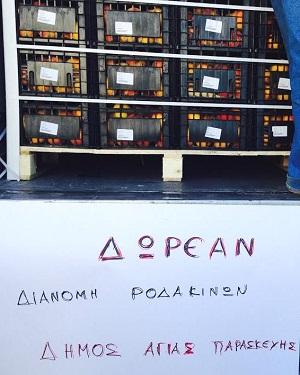 ΔΩΡΕΑΝ
ΔΙΑΝΟΜΗ ΡΟΔΑΚΙΝΩΝ
ΔΗΜΟΣ ΑΓΙΑΣ ΠΑΡΑΣΚΕΥΗΣ